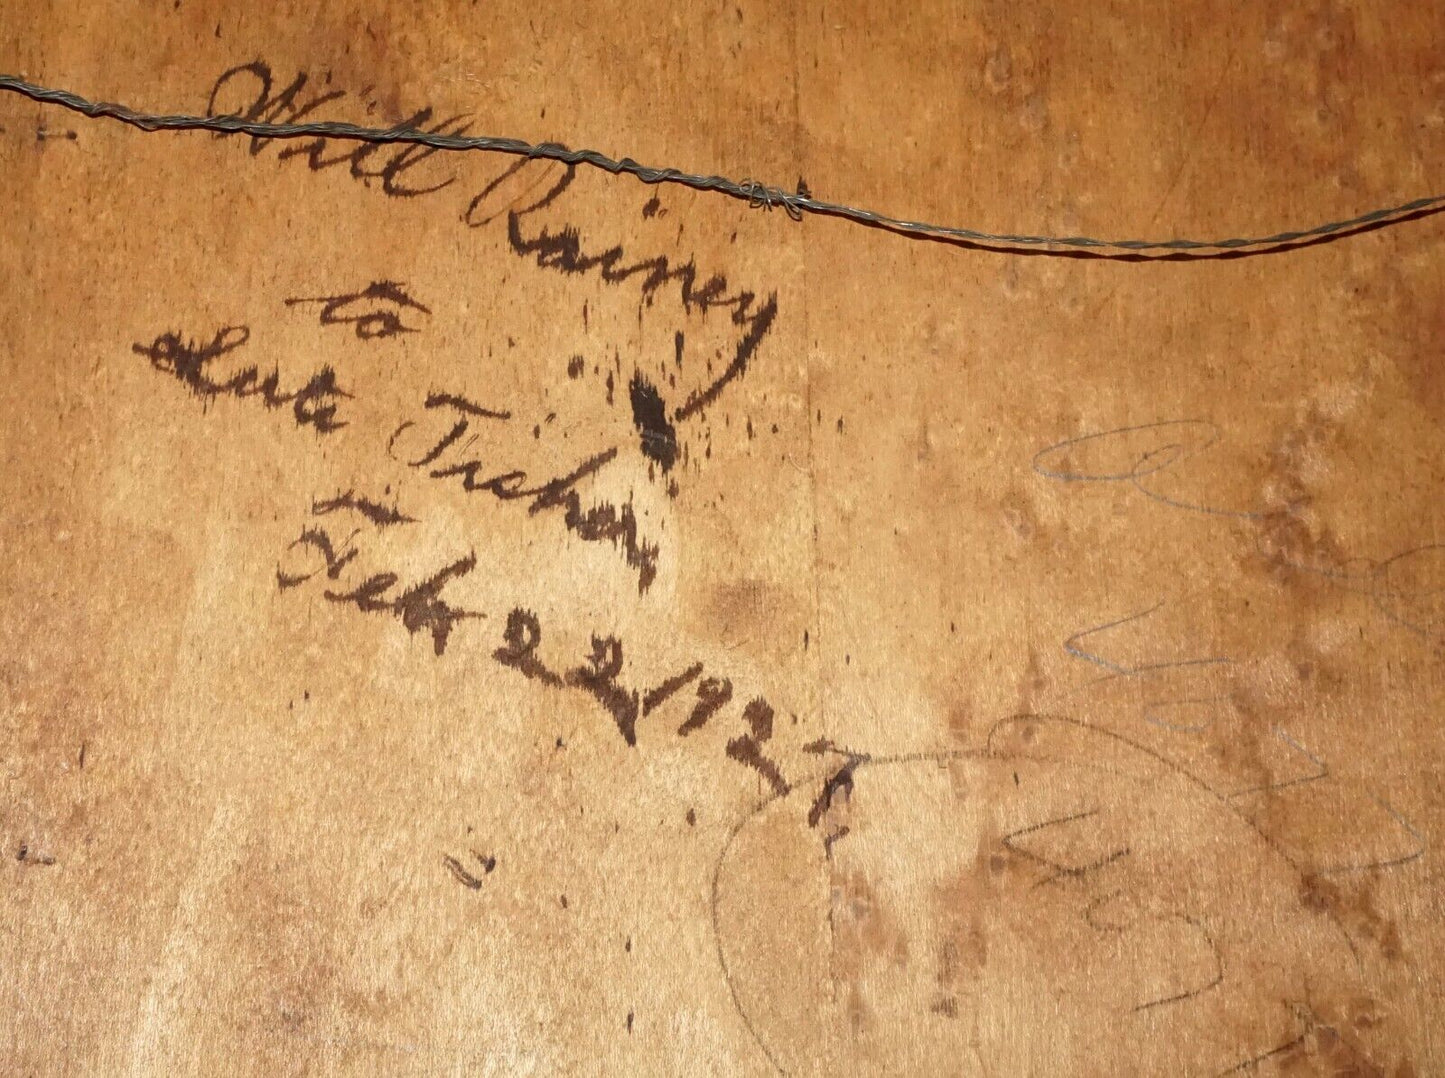 Will Rainey
to
Lute Tisher
Feb 22, 1927
45